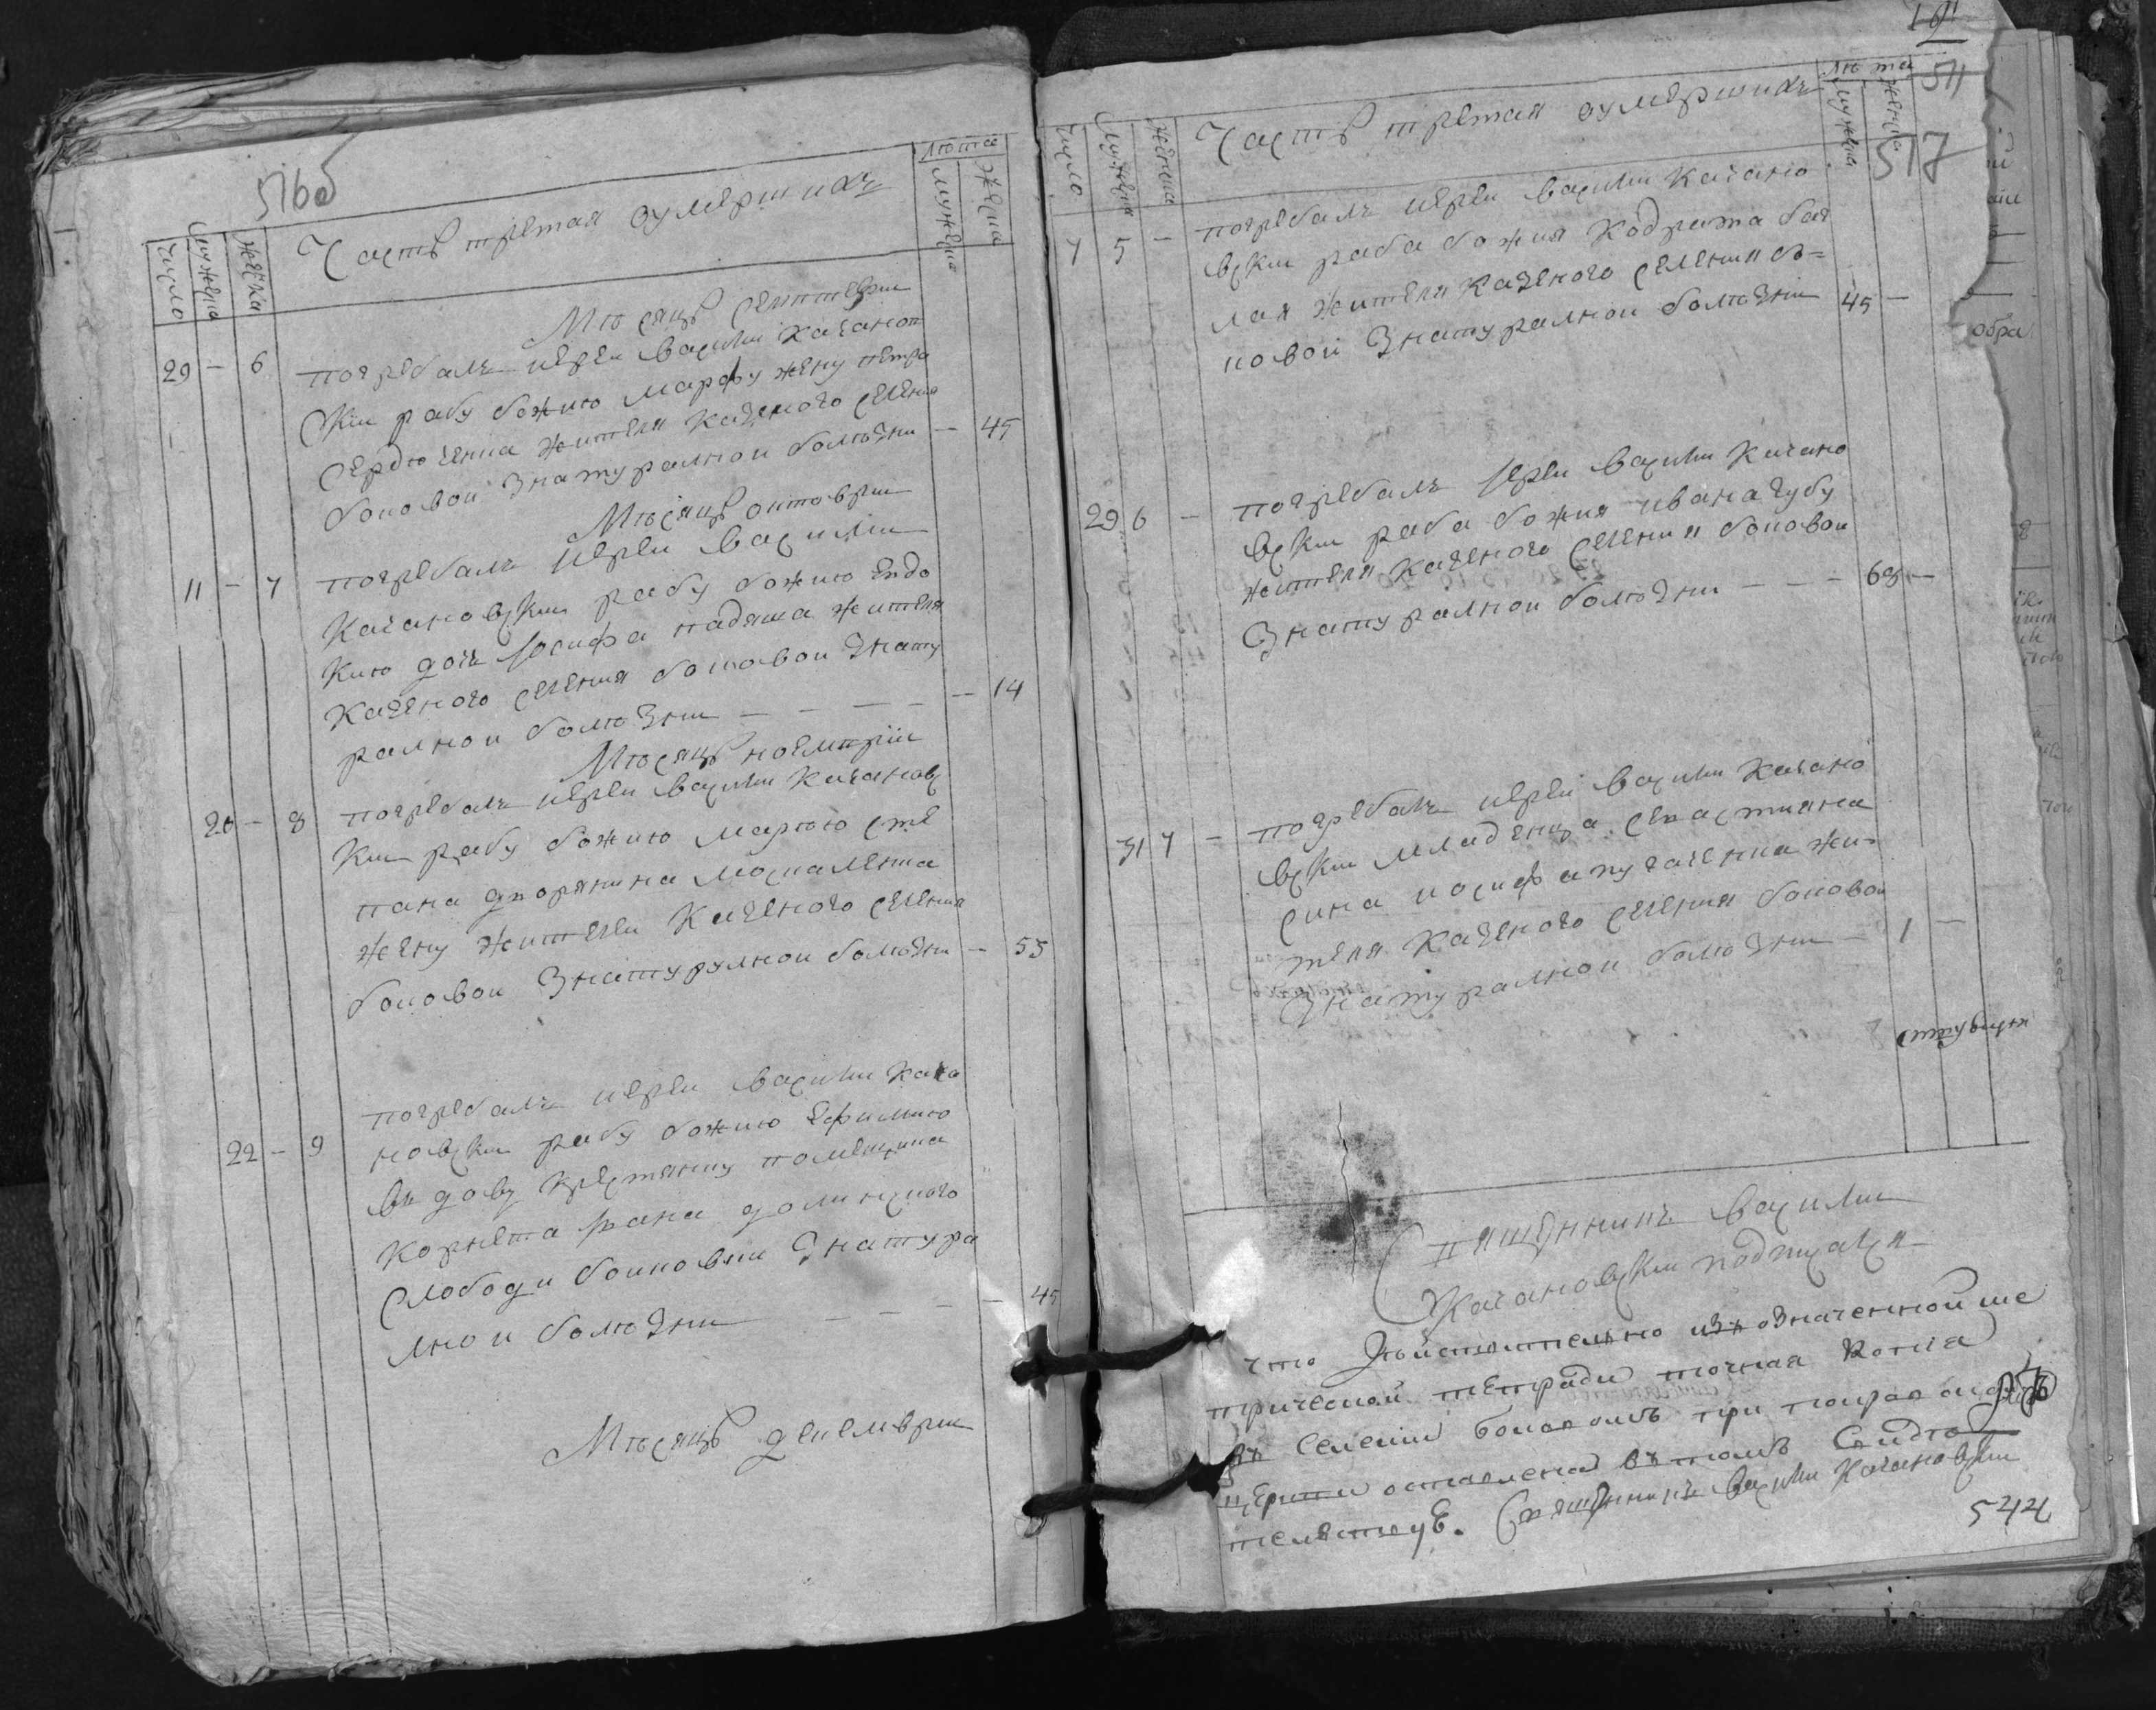 516об
Часть третая оумершихъ
лѣта
число
мужеска
женска
мужеска
женска
Мѣсяцъ септеврїи
29 – 6 погребалъ иереи василіи качанов
скїи рабу божию марфу жену петра
сердюченка жителя казеного селения
боковои знатуралнои болѣзни – 45
Мѣсяцъ октоврїи
11 – 7 погребалъ иереи василїи
качановскїи рабу божию евдо
кию дочь Іосифа жителя
казеного селения боковои знату
ралнои болѣзни – – – – 14
Мѣсяцъ ноемврїи
20 – 8 погребалъ иереи василіи качановс
кїи рабу божию марию сте
пана дворянина москаленка
жену жителя казеного селения
боковои знатуралнои болѣзни – 55
22 – 9 погребалъ иереи василіи кача
новскїи рабу божию ефимию
вдову крестянку помещика
корнета пана долинского
слободи боковои знатура
лнои болѣзни – – – 45
Мѣсяцъ декемврїи
191
511
517
Часть третая оумершихъ
лѣта
число
мужеска
женска
мужеска
женска
7 5 – погребалъ иереи василіи качано
вскїи раба божия Кодрата
жителя казеного селения бо=
ковои знатуралнои болѣзни 45 –
29 6 – погребалъ Іереи василіи качано
вскїи раба божия ивана губу
жителя казеного селения боковои
знатуралнои болѣзни – – – 68 –
31 7 – погребалъ иереи василіи качано
вскїи младенца севастияна
сина иосифа пугаченка жи=
теля казеного селения боковои
знатуралнои болѣзни – 1 –
Священникъ василіи
Качановскїи подписался
что действително изъ означенной ме
трической тетради точная копия
въ селении боковомъ при покровской
церкви оставлена въ томъ свидѣ
телствуе. Священникъ василіи Качановскїи
544